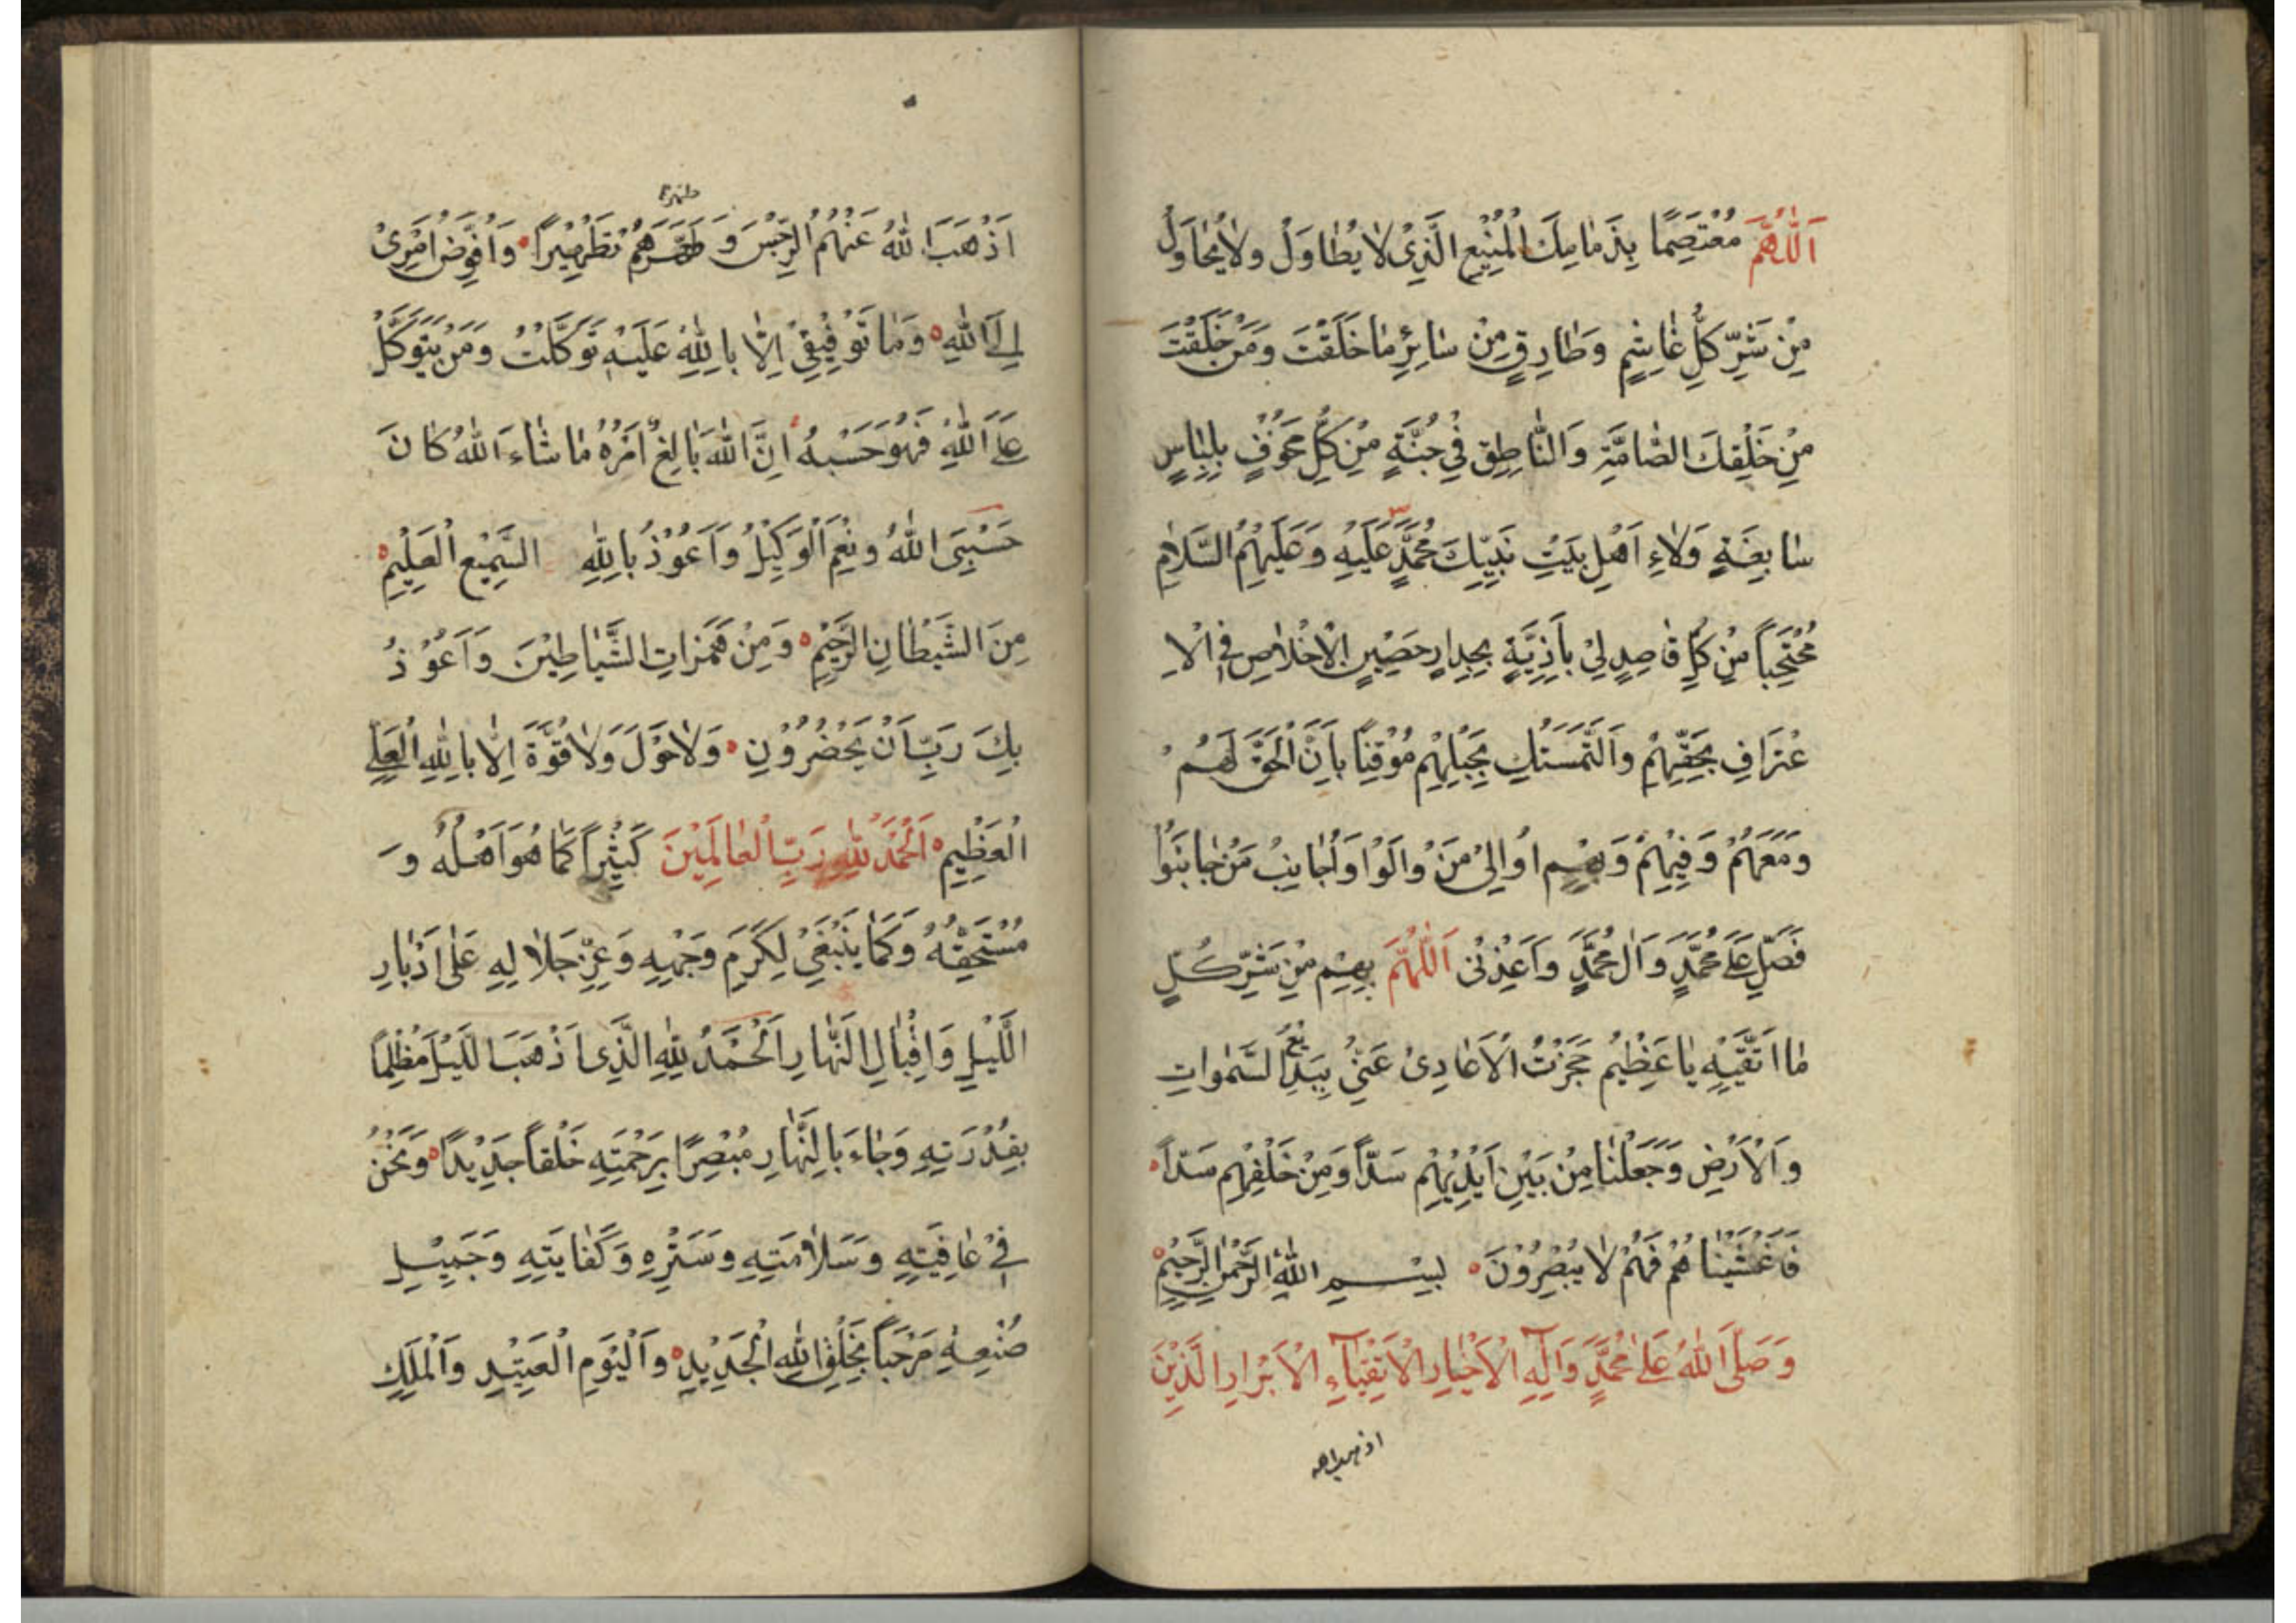 اَللّٰهُمَّ مُعْتَصِمًا بِذَمَامِكَ الْمُنِيْعِ الَّذِىْ لَا يُطَاوَلُ وَلَا يُحَاوَلُ
مِنْ شَرِّ كُلِّ غَاشِمٍ وَطَارِقٍ مِنْ سَائِرِ مَا خَلَقْتَ وَمَنْ خَلَقْتَ
مِنْ خَلْقِكَ الصَّامَّةِ وَالنَّاطِقِ فِيْ جُنَّةٍ مِنْ كُلِّ مَخُوْفٍ بِلِبَاسٍ
سَابِغَةٍ وَلَاءِ اَهْلِ بَيْتِ نَبِيِّكَ مُحَمَّدٍ عَلَيْهِ وَعَلَيْهِمُ السَّلَامِ
مُحْتَجِبًا مِنْ كُلِّ قَاصِدٍ لِيْ بِاَذِيَّةٍ بِجِدَارٍ حَصِيْنِ الْاِخْلَاصِ فِى الْاِ
عْتِرَافِ بِحَقِّهِمْ وَالتَّمَسُّكِ بِحَبْلِهِمْ مُوْقِنًا بِاَنَّ الْحَقَّ لَهُمْ
وَمَعَهُمْ وَفِيْهِمْ وَبِهِمْ اُوَالِيْ مَنْ وَالَوْا وَاُجَانِبُ مَنْ جَانَبُوْا
فَصَلِّ عَلٰى مُحَمَّدٍ وَاٰلِ مُحَمَّدٍ وَاَعِذْنِىْ اَللّٰهُمَّ بِهِمْ مِنْ شَرِّ كُلِّ
مَا اَتَّقِيْهِ يَا عَظِيْمُ حَجَزْتُ الْاَعَادِىْ عَنِّيْ بِبَدِيْعِ السَّمٰوَاتِ
وَالْاَرْضِ وَجَعَلْنَا مِنْ بَيْنِ اَيْدِيْهِمْ سَدًّا وَمِنْ خَلْفِهِمْ سَدًّا
فَاَغْشَيْنَاهُمْ فَهُمْ لَا يُبْصِرُوْنَ بِسْمِ اللّٰهِ الرَّحْمٰنِ الرَّحِيْمِ
وَصَلَّى اللّٰهُ عَلٰى مُحَمَّدٍ وَاٰلِهِ الْاَخْيَارِ الْاَتْقِيَآءِ الْاَبْرَارِ الَّذِيْنَ
اذهب الله
طهرهم
اَذْهَبَ اللّٰهُ عَنْهُمُ الرِّجْسَ وَطَهَّرَهُمْ تَطْهِيْرًا وَاُفَوِّضُ اَمْرِىْ
اِلَى اللّٰهِ وَمَا تَوْفِيْقِيْ اِلَّا بِاللّٰهِ عَلَيْهِ تَوَكَّلْتُ وَمَنْ يَتَوَكَّلْ
عَلَى اللّٰهِ فَهُوَ حَسْبُهُ اِنَّ اللّٰهَ بَالِغُ اَمْرِهُ مَا شَاءَ اللّٰهُ كَانَ
حَسْبِيَ اللّٰهُ وَنِعْمَ الْوَكِيْلُ وَاَعُوْذُ بِاللّٰهِ السَّمِيْعِ الْعَلِيْمِ
مِنَ الشَّيْطَانِ الرَّجِيْمِ وَمِنْ هَمَزَاتِ الشَّيَاطِيْنَ وَاَعُوْذُ
بِكَ رَبِّ اَنْ يَحْضُرُوْنِ وَلَا حَوْلَ وَلَا قُوَّةَ اِلَّا بِاللّٰهِ الْعَلِيِّ
الْعَظِيْمِ اَلْحَمْدُ لِلّٰهِ رَبِّ الْعَالَمِيْنَ كَثِيْرًا كَمَا هُوَ اَهْلُهُ وَ
مُسْتَحِقُّهُ وَكَمَا يَنْبَغِيْ لِكَرَمِ وَجْهِهِ وَعِزِّ جَلَالِهِ عَلٰى اَدْبَارِ
اللَّيْلِ وَاِقْبَالِ النَّهَارِ اَلْحَمْدُ لِلّٰهِ الَّذِى اَذْهَبَ اللَّيْلَ مُظْلِمًا
بِقُدْرَتِهِ وَجَاءَ بِالنَّهَارِ مُبْصِرًا بِرَحْمَتِهِ خَلْقًا جَدِيْدًا وَنَحْنُ
فِيْ عَافِيَتِهِ وَسَلَامَتِهِ وَسَتْرِهِ وَكَفَايَتِهِ وَجَمِيْلِ
صُنْعِهِ مَرْحَبًا بِخَلْقِ اللّٰهِ الْجَدِيْدِ وَالْيَوْمِ الْعَتِيْدِ وَالْمَلَكِ